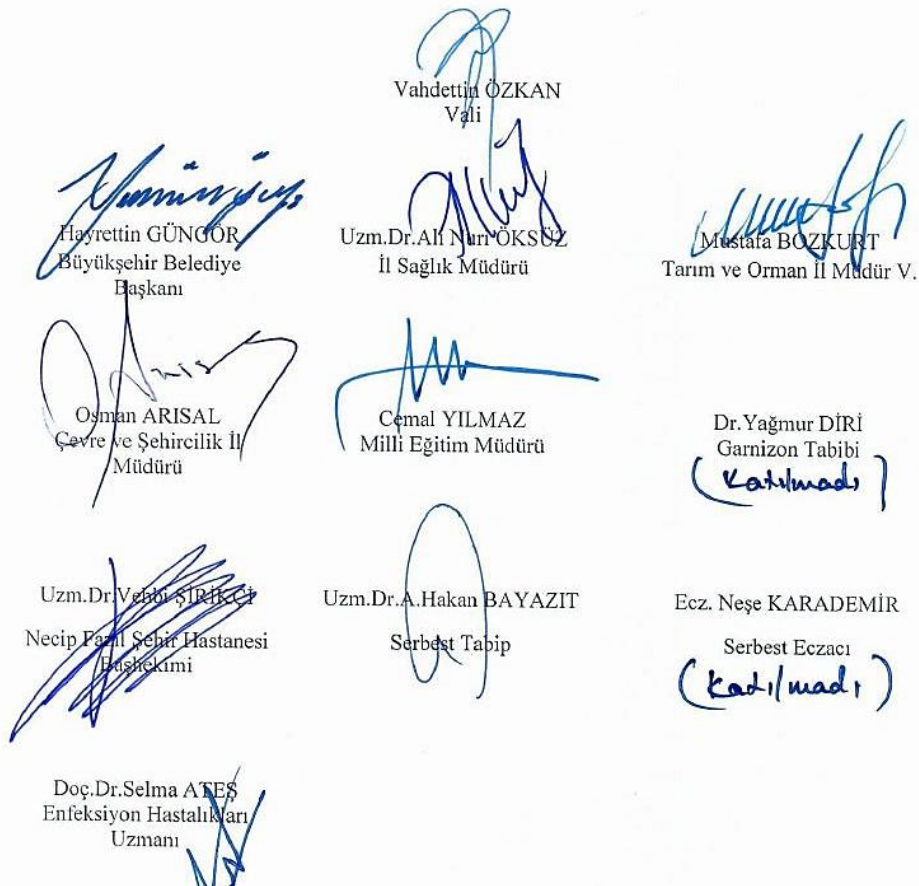 Vahdettin ÖZKAN
Vali
Hayrettin GÜNGÖR
Büyükşehir Belediye
Başkanı
Uzm.Dr.Ali Nuri ÖKSÜZ
İl Sağlık Müdürü
Mustafa BOZKURT
Tarım ve Orman İl Müdür V.
Osman ARISAL
Çevre ve Şehircilik İl
Müdürü
Cemal YILMAZ
Milli Eğitim Müdürü
Dr.Yağmur DİRİ
Garnizon Tabibi
(Katılmadı)
Uzm.Dr.Vehbi ŞİRİKÇİ
Necip Fazıl Şehir Hastanesi
Başhekimi
Uzm.Dr.A.Hakan BAYAZIT
Serbest Tabip
Ecz. Neşe KARADEMİR
Serbest Eczacı
(Katılmadı)
Doç.Dr.Selma ATEŞ
Enfeksiyon Hastalıkları
Uzmanı